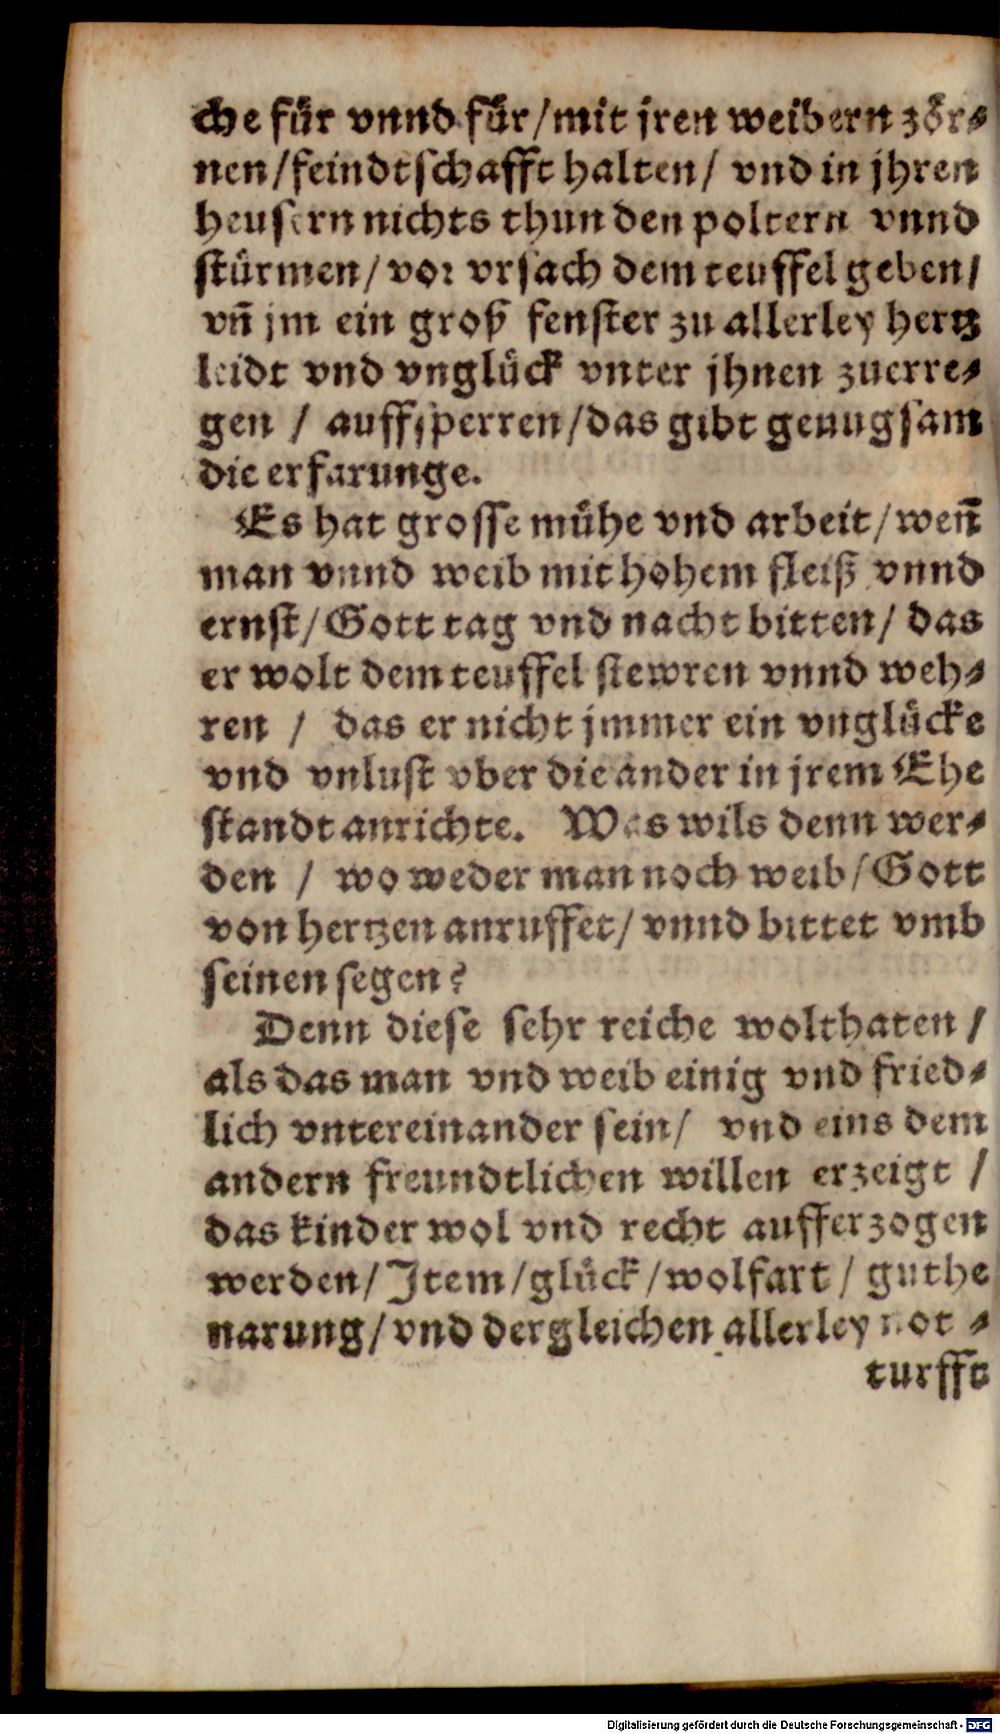 che für vnnd für/mit jren weibern zör⸗
nen/feindtschafft halten/ vnd in jhren
heusern nichts thun den poltern vnnd
stürmen/vor vrsach dem teuffel geben/
vn̄ jm ein groß fenster zu allerley hertz
leidt vnd vnglück vnter jhnen zuerre⸗
gen / auffsperren/das gibt genugsam
die erfarunge.
Es hat grosse mühe vnd arbeit/wen̄
man vnnd weib mit hohem fleiß vnnd
ernst/Gott tag vnd nacht bitten/ das
er wolt dem teuffel stewren vnnd weh⸗
ren / das er nicht jmmer ein vnglücke
vnd vnlust vber die ander in jrem Ehe
standt anrichte. Was wils denn wer⸗
den / wo weder man noch weib/Gott
von hertzen anruffet/ vnnd bittet vmb
seinen segen?
Denn diese sehr reiche wolthaten /
als das man vnd weib einig vnd fried⸗
lich vntereinander sein/ vnd eins dem
andern freundtlichen willen erzeigt /
das kinder wol vnd recht aufferzogen
werden/Item/glück/wolfart/ guthe
narung/vnd dergleichen allerley not ⸗
turfft
Digitalisierung gefördert durch die Deutsche Forschungsgemeinschaft - DFG